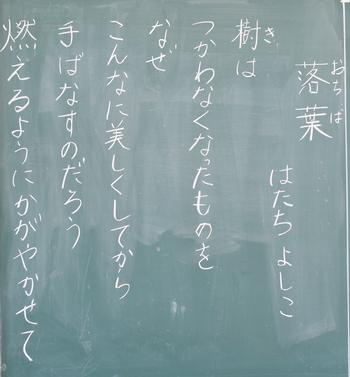 落葉
はたち よしこ
樹は
つかわなくなったものを
なぜ
こんなに美しくしてから
手ばなすのだろう
燃えるようにかがやかせて